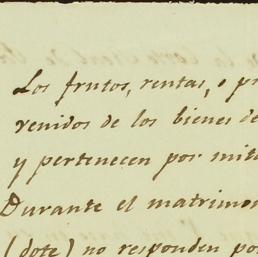 Los frutos, rentas, o pr
venidos de los bienes de
y pertenecen por mita
Durante el matrimon
(dote) no responden po